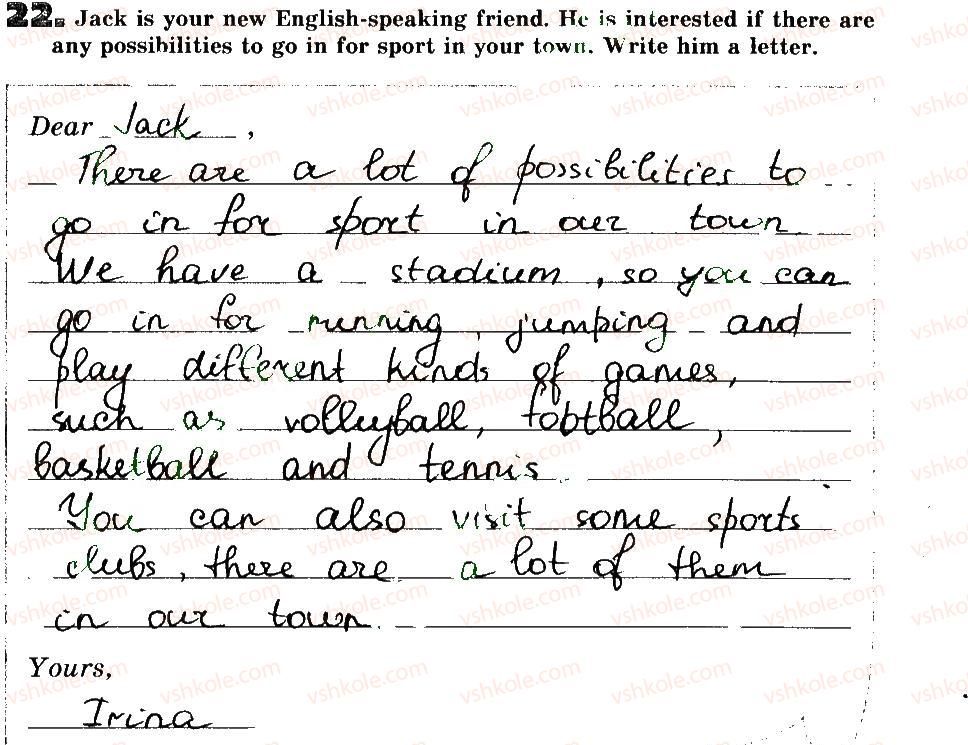 22. Jack is your new English-speaking friend. He is interested if there are
any possibilities to go in for sport in your town. Write him a letter.
Dear Jack,
There are a lot of possibilities to
go in for sport in our town
We have a stadium, so you can
go in for running, jumping and
play different kinds of games,
such as volleyball, football,
basketball and tennis.
You can also visit some sports
clubs, there are a lot of them
in our town.
Yours,
Irina
vshkole.com